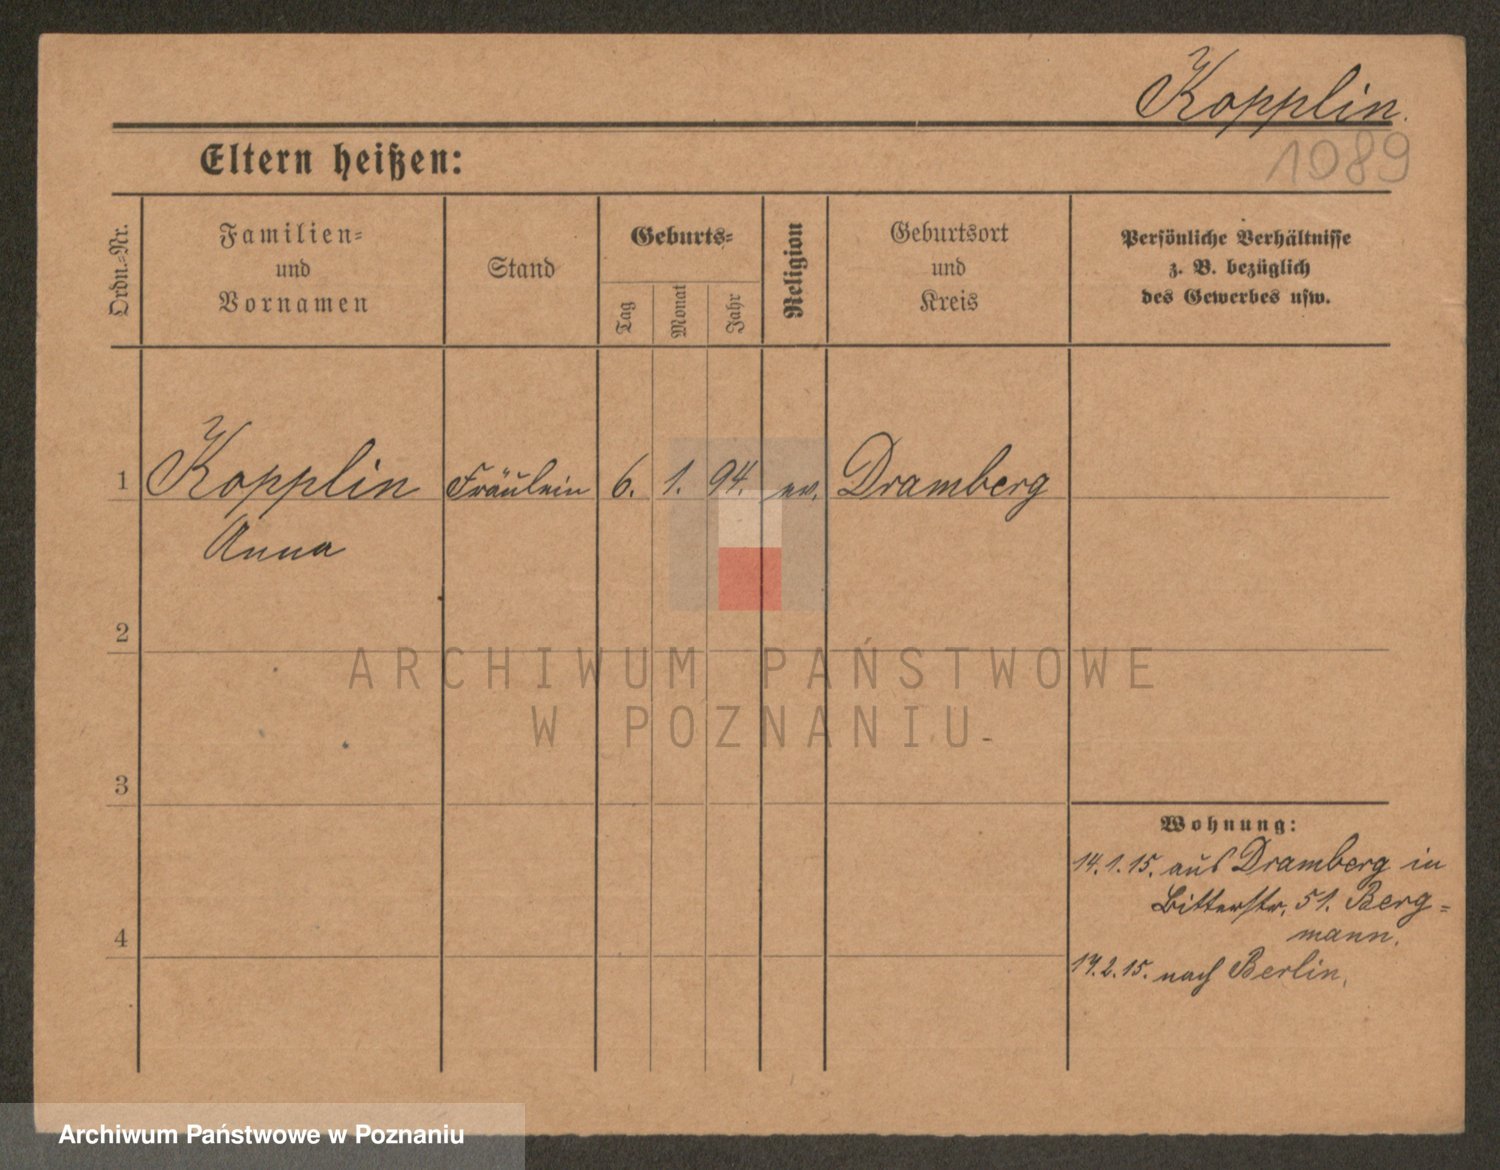 Kopplin.
1089
Eltern heißen:
Ordn.-Nr.
Familien-
und
Vornamen
Stand
Geburts-
Tag
Monat
Jahr
Religion
Geburtsort
und
Kreis
Persönliche Verhältnisse
z. B. bezüglich
des Gewerbes usw.
1 Kopplin Fräulein 6. 1. 94. ev. Dramberg
Anna
2
ARCHIWUM PAŃSTWOWE
W POZNANIU
3
Wohnung:
14.1.15. aus Dramberg in
Bitterstr. 51. Berg-
mann.
4
17.2.15. nach Berlin.
Archiwum Państwowe w Poznaniu